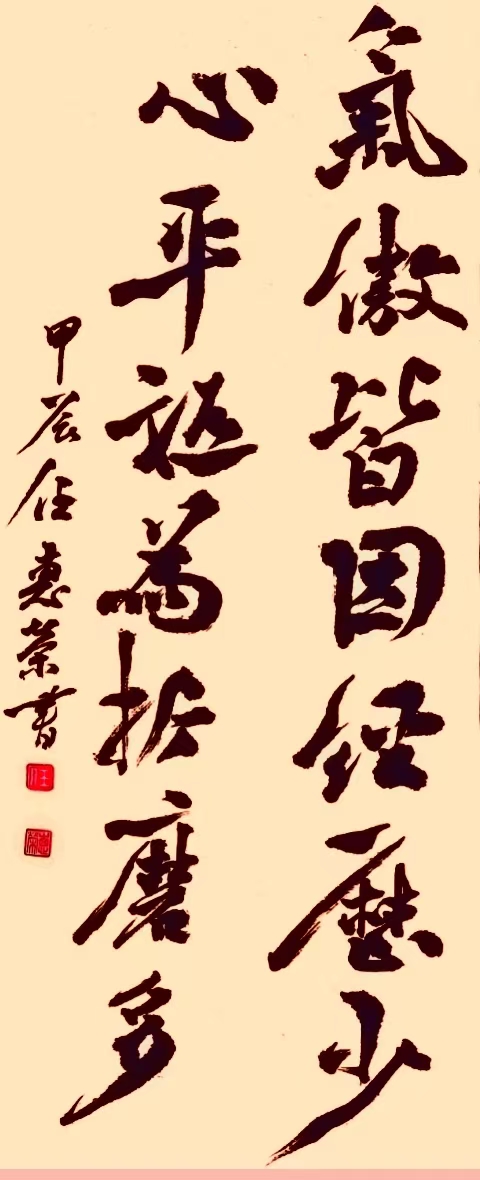 氣傲皆因經歷少
心平祗為折磨多
甲辰任惠榮書